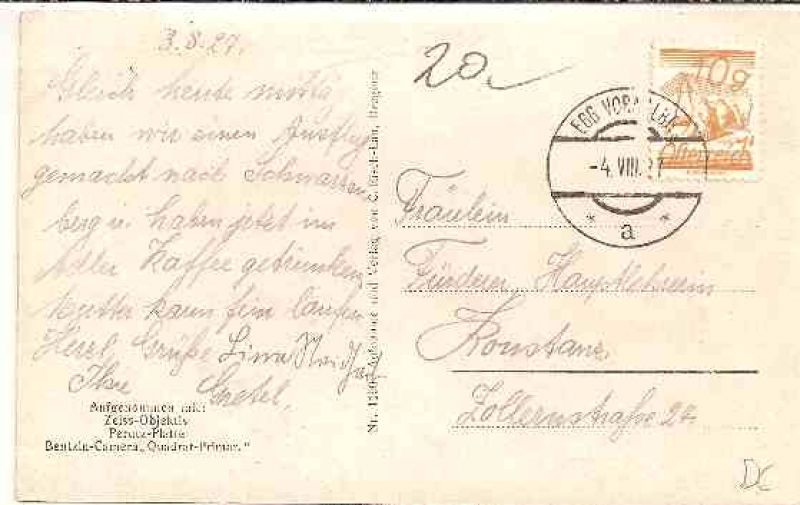 3.8.27.
Gleich heute mittag
haben wir einen Ausflug
gemacht nach Schwarzen
berg u. haben jetzt im
Adler Kaffee getrunken
Mutter kann fein laufen
Herzl. Grüße Lina
Ihre Gretel.
Aufgenommen mit:
Zeiss-Objektiv
Perutz-Platte
Bentzin-Camera „Quadrat-Primar."
Aufnahme und Verlag von C. Risch-Lau, Bregenz
20
10g
Österreich
EGG VORARLBG
-4.VIII.27
* a *
Fräulein
Hauptlehrerin
Konstanz
Zollernstraße 27.